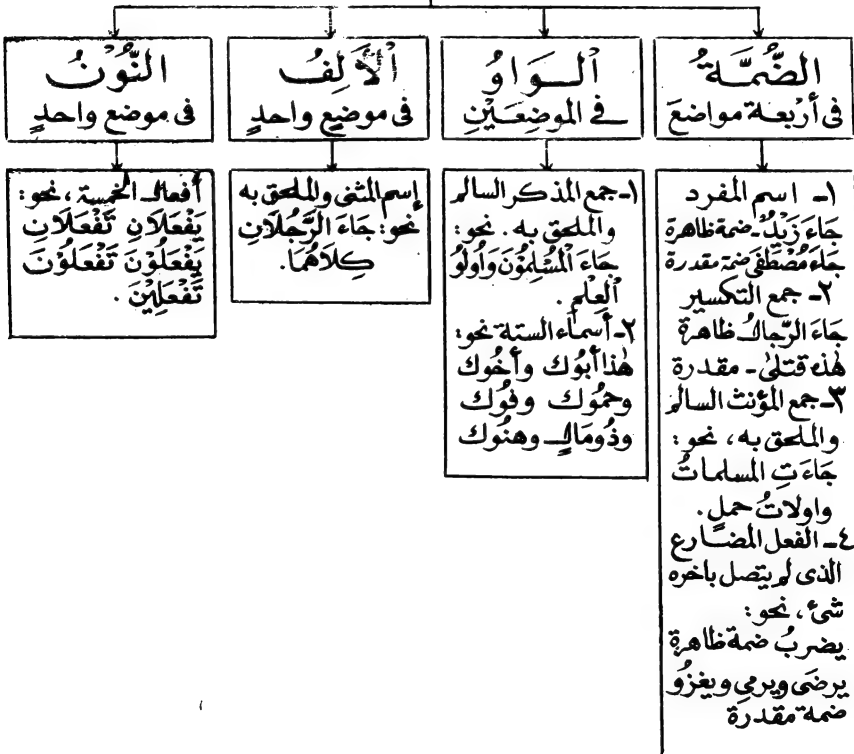 الضُّمَّةُ
فى أربعة مواضعَ
١ـ اسم المفرد
جَاءَ زَيْدٌ ـ ضمة ظاهرة
جَاءَ مُصْطَفَى ضمة مقدرة
٢ـ جمع التكسير
جَاءَ الرِّجالُ ظاهرة
هٰذه قتلىٰ ـ مقدرة
٣ـ جمع المؤنث السالم
والملحق به ، نحو :
جَاءَتِ المسلماتُ
واولاتُ حملٍ .
٤ـ الفعل المضارع
الذى لم يتصل باخره
شئ ، نحو :
يضربُ ضمة ظاهرة
يرضَى ويرمِى ويغزُو
ضمة مقدرة
اَلْوَاوُ
فى الموضِعَيْنِ
١ـ جمع المذكر السالم
والملحق به . نحو :
جَاءَ الْمُسْلِمُوْنَ وَأُولُو
الْعِلْمِ .
٢ـ أسماء الستة نحو :
هٰذا أبُوْك وأخُوك
وحمُوك وفُوْك
وذُومَالٍ وهنُوك
اَلْأَلِفُ
فى موضِعٍ واحدٍ
إسم المثنى والملحق به
نحو : جَاءَ الرَّجُلَانِ
كِلَاهُمَا .
النُّوْنُ
فى موضع واحدٍ
أفعال الخمسة ، نحو :
يَفْعَلَانِ تَفْعَلَانِ
يَفْعَلُوْنَ تَفْعَلُوْنَ
تَفْعَلِيْنَ .